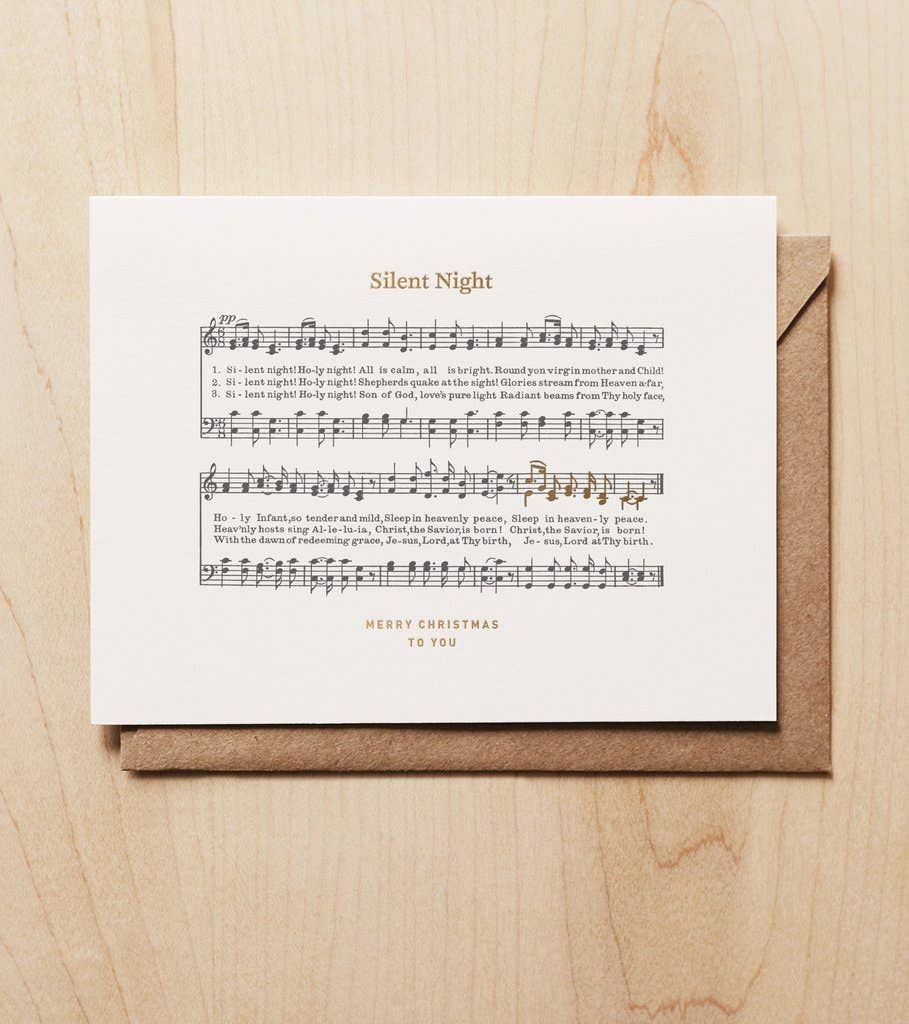 Silent Night
pp
1. Si - lent night! Ho-ly night! All is calm, all is bright. Round yon virgin mother and Child!
2. Si - lent night! Ho-ly night! Shepherds quake at the sight! Glories stream from Heaven a-far,
3. Si - lent night! Ho-ly night! Son of God, love's pure light Radiant beams from Thy holy face,
Ho - ly Infant, so tender and mild, Sleep in heavenly peace, Sleep in heaven-ly peace.
Heav'nly hosts sing Al-le-lu-ia, Christ, the Savior, is born! Christ, the Savior, is born!
With the dawn of redeeming grace, Je-sus, Lord, at Thy birth, Je-sus, Lord at Thy birth.
MERRY CHRISTMAS
TO YOU